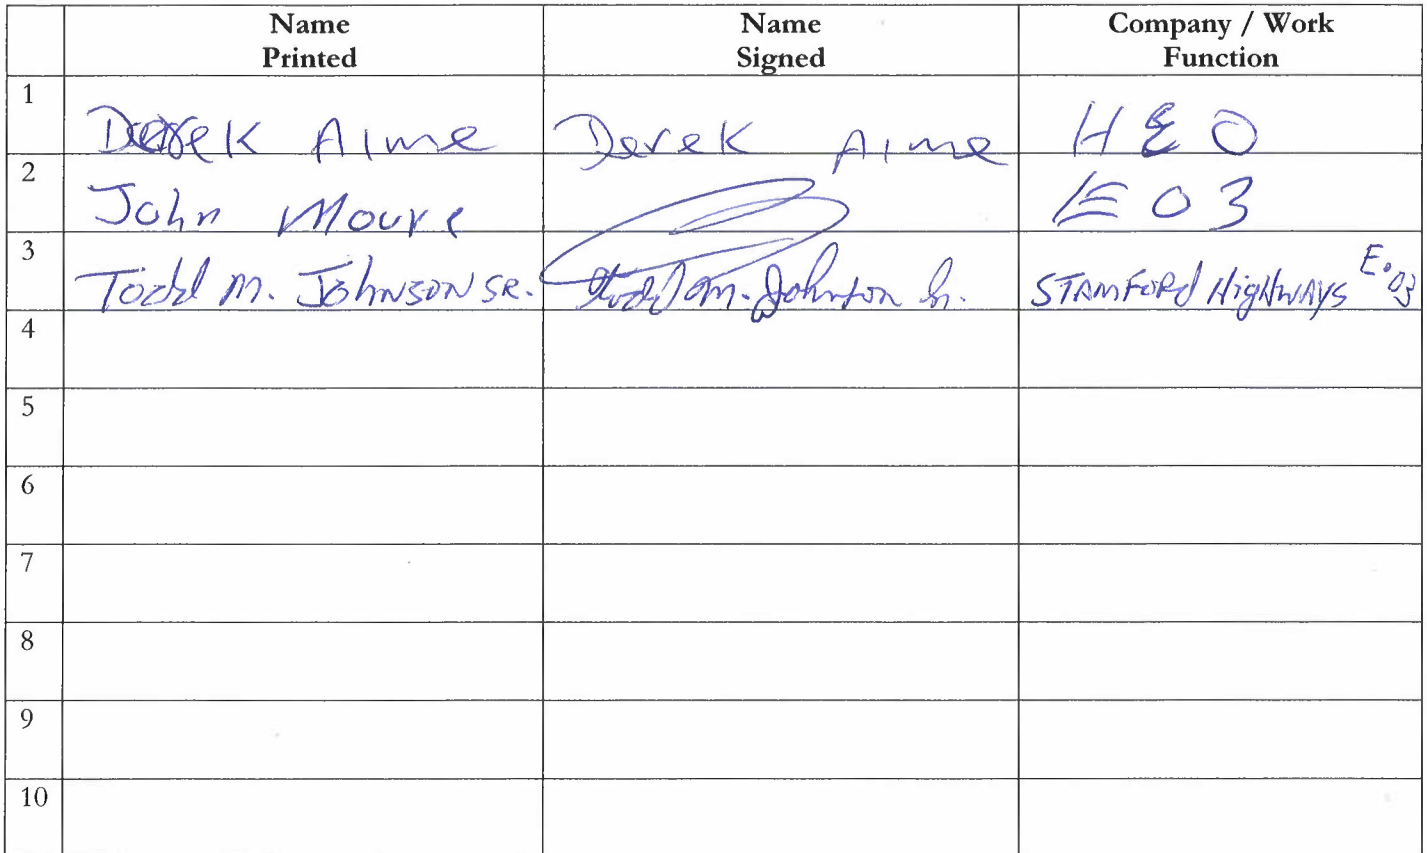 Name Printed Name Signed Company / Work Function
1 Derek Aime Derek Aime HEO
2 John Moore EO3
3 Todd M. Johnson SR. Todd M. Johnson Sr. STAMFORD HigHWAYS E.03
4
5
6
7
8
9
10